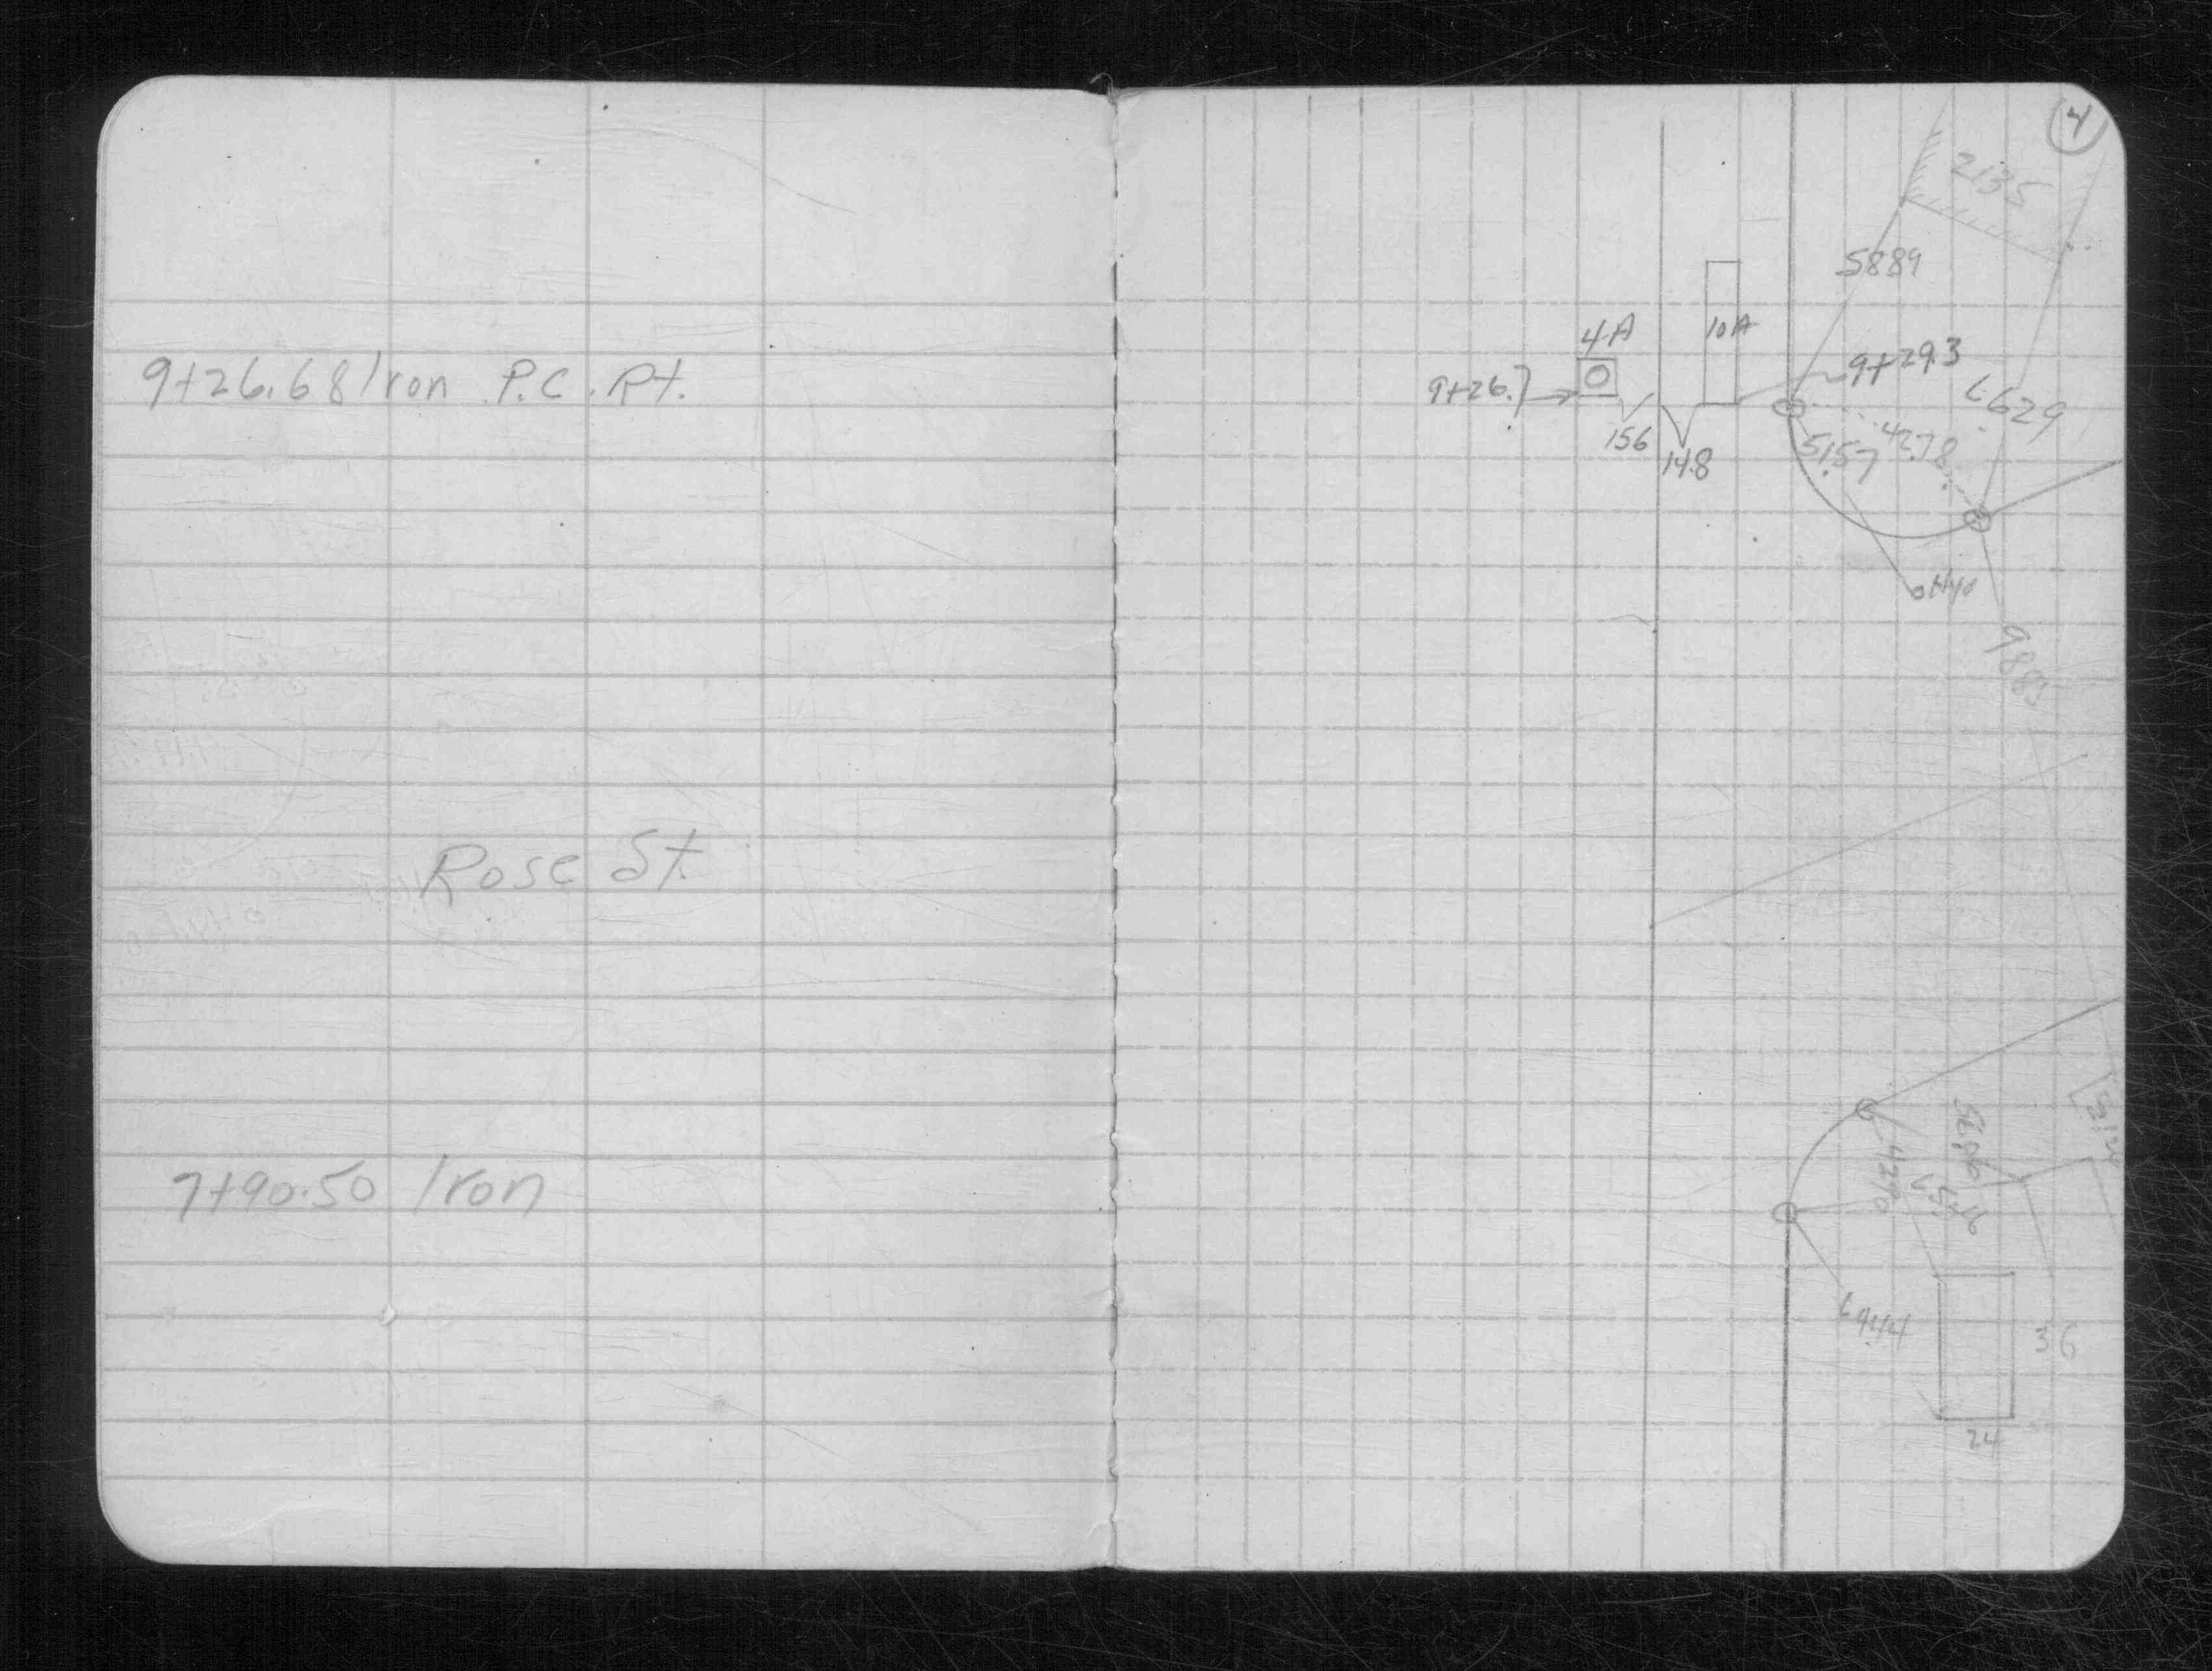 9+26.68 Iron P.C. Pt.
Rose St.
7+90.50 Iron
4
2135
5889
4A
10A
9+26.7
9+29.3
L629
156
14.8
5157
4278
Hyd
9885
4290
L944
36
24